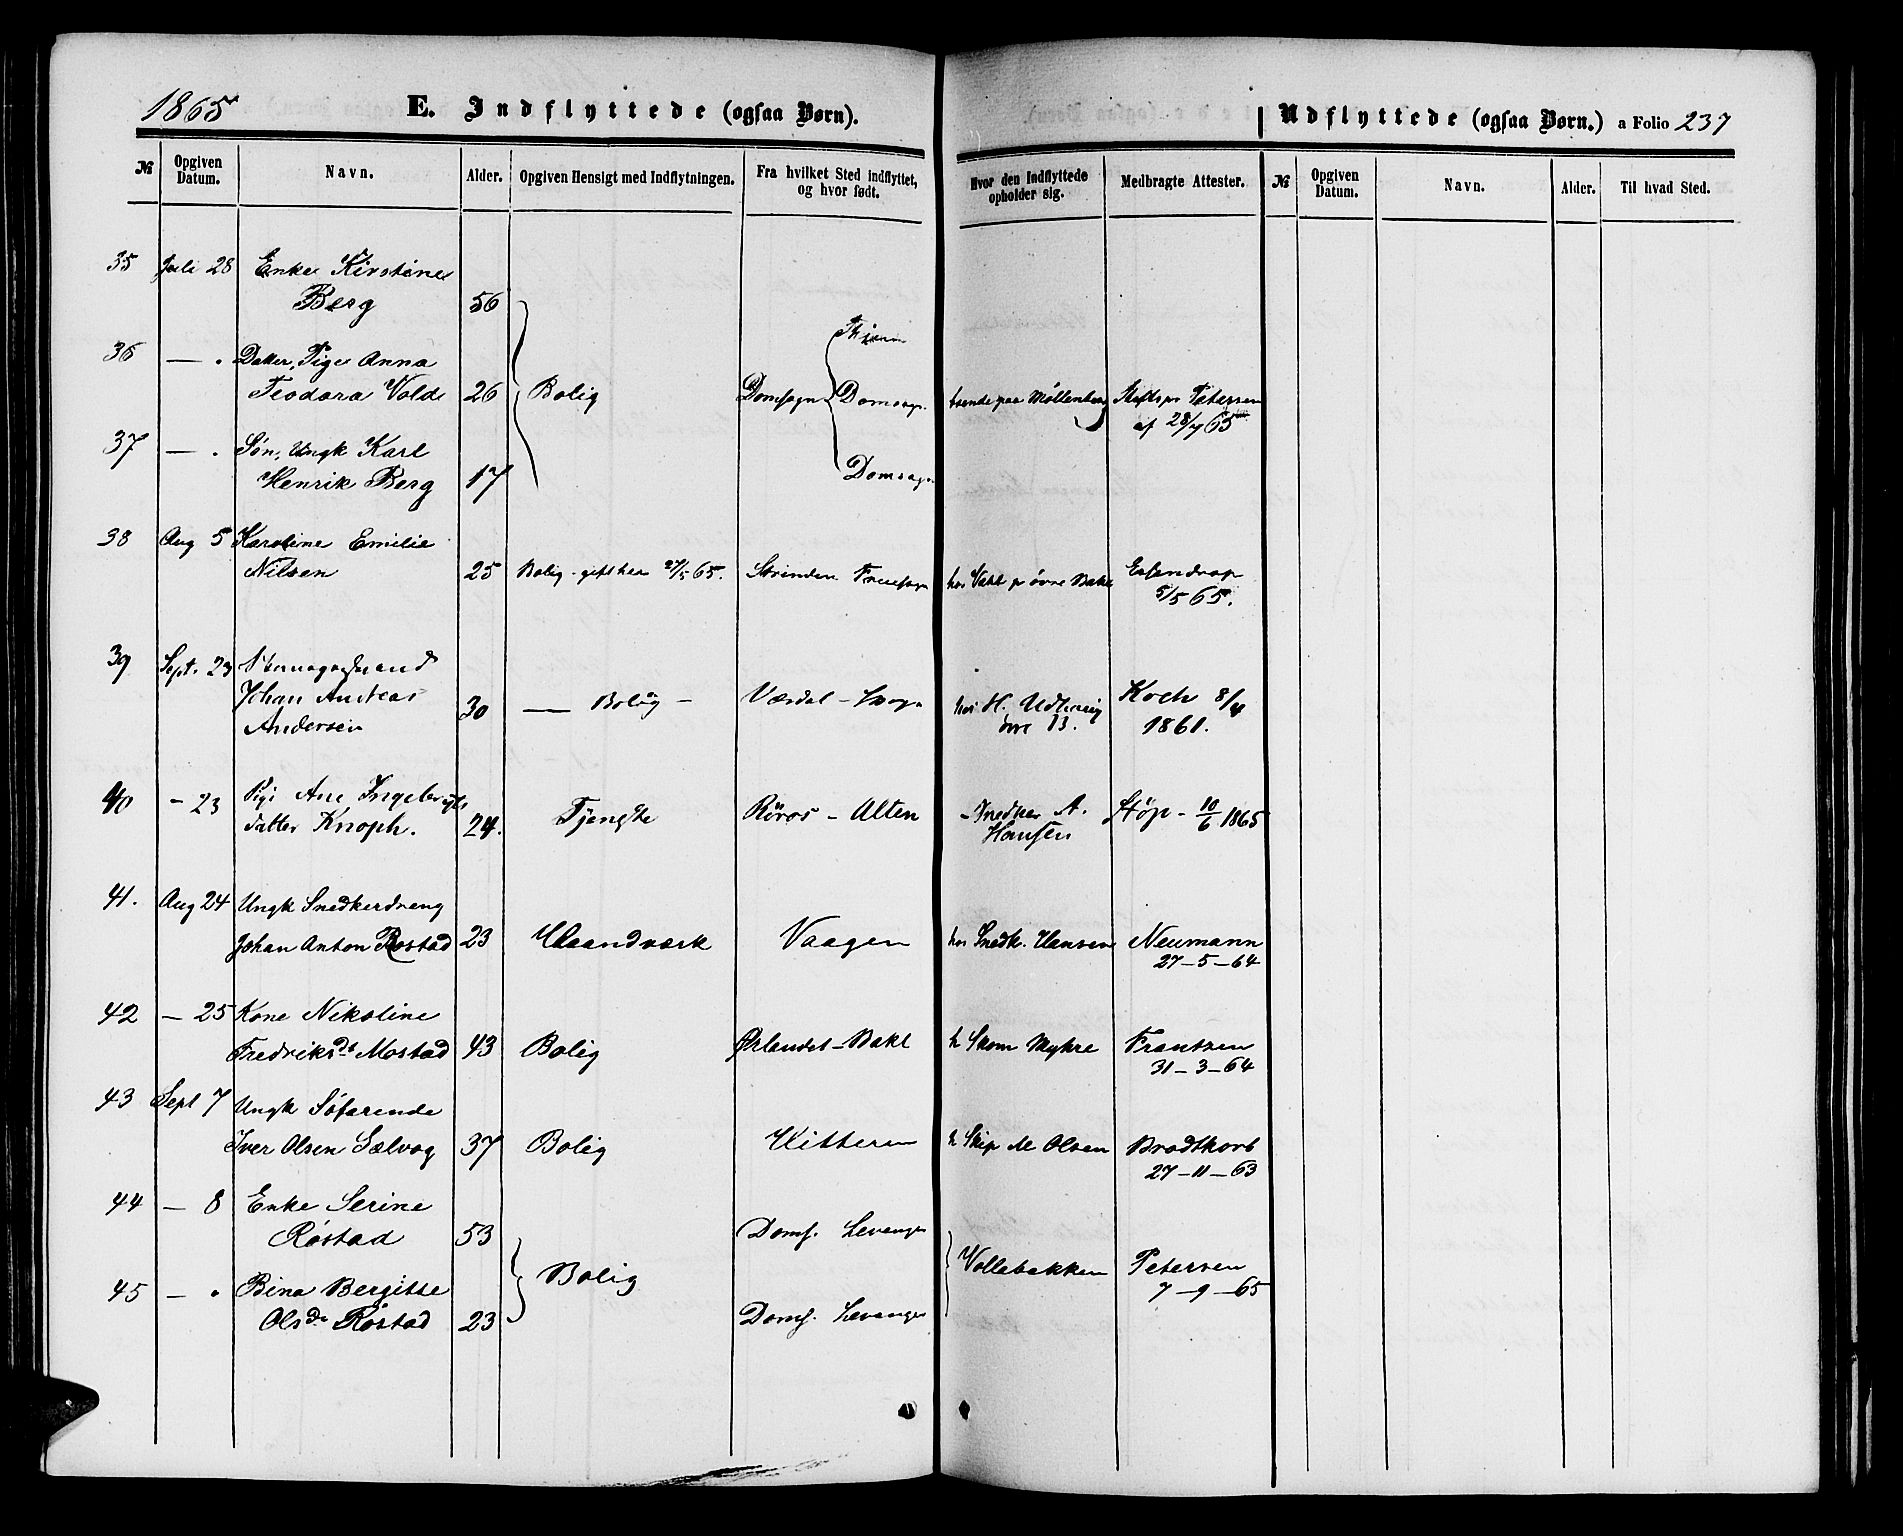 1865 E. Indflyttede (ogsaa Børn). Udflyttede (ogsaa Børn.) a Folio 237
№ Opgiven Datum. Navn. Alder. Opgiven Hensigt med Indflytningen. Fra hvilket Sted indflyttet, og hvor født. Hvor den Indflyttede opholder sig. Medbragte Attester. № Opgiven Datum. Navn. Alder. Til hvad Sted.
35 Juli 28 Enke Kirstine
Berg 56
36 — . Datter, Pige Anna
Teodora Vold 26 Bolig Domsogn Domsogn. boende paa Møllenberg Stiftspr Petersen
af 28/7 65
37 — . Søn, Ungk Karl
Henrik Berg 17 Domsogn
38 Aug 5 Karoline Emilie
Nilsen 25 Bolig - gift her 27/5 65. Strinden Fruesogn hos Vakt p øvre Bakl Essendrop
5/5 65.
39 Sept. 23
Johan Andreas
Andersen 30 — Bolig - Værdal - Skogn hos H.
Koch 8/4
1861.
40 - 23 Pige Ane Ingebrigts
datter Knoph. 24. Tjeneste Røros - Alten - Snedker A.
Hansen Støp - 10/6 1865
41. Aug 24 Ungk Snedkerdreng
Johan Anton Rostad 23 Haandværk Vaagen hos Snedk. Hansen Neumann
27-5-64
42 — 25 Kone Nikoline
Fredriksdt Mostad 43 Bolig Ørlandet - Bakl h Skom Myhre Frantzen
31-3-64
43 Sept 7 Ungk Søfarende
Iver Olsen Sælvog 37 Bolig Hitteren h Skip M Olsen Brodtkorb
27-11-63
44 — 8 Enke Serine
Røstad 53 Domf. Levanger
Bolig Vollabakken Petersen
7-9-65
45 — . Bina Bergitte
Olsd. Røstad 23 Domf. Levanger